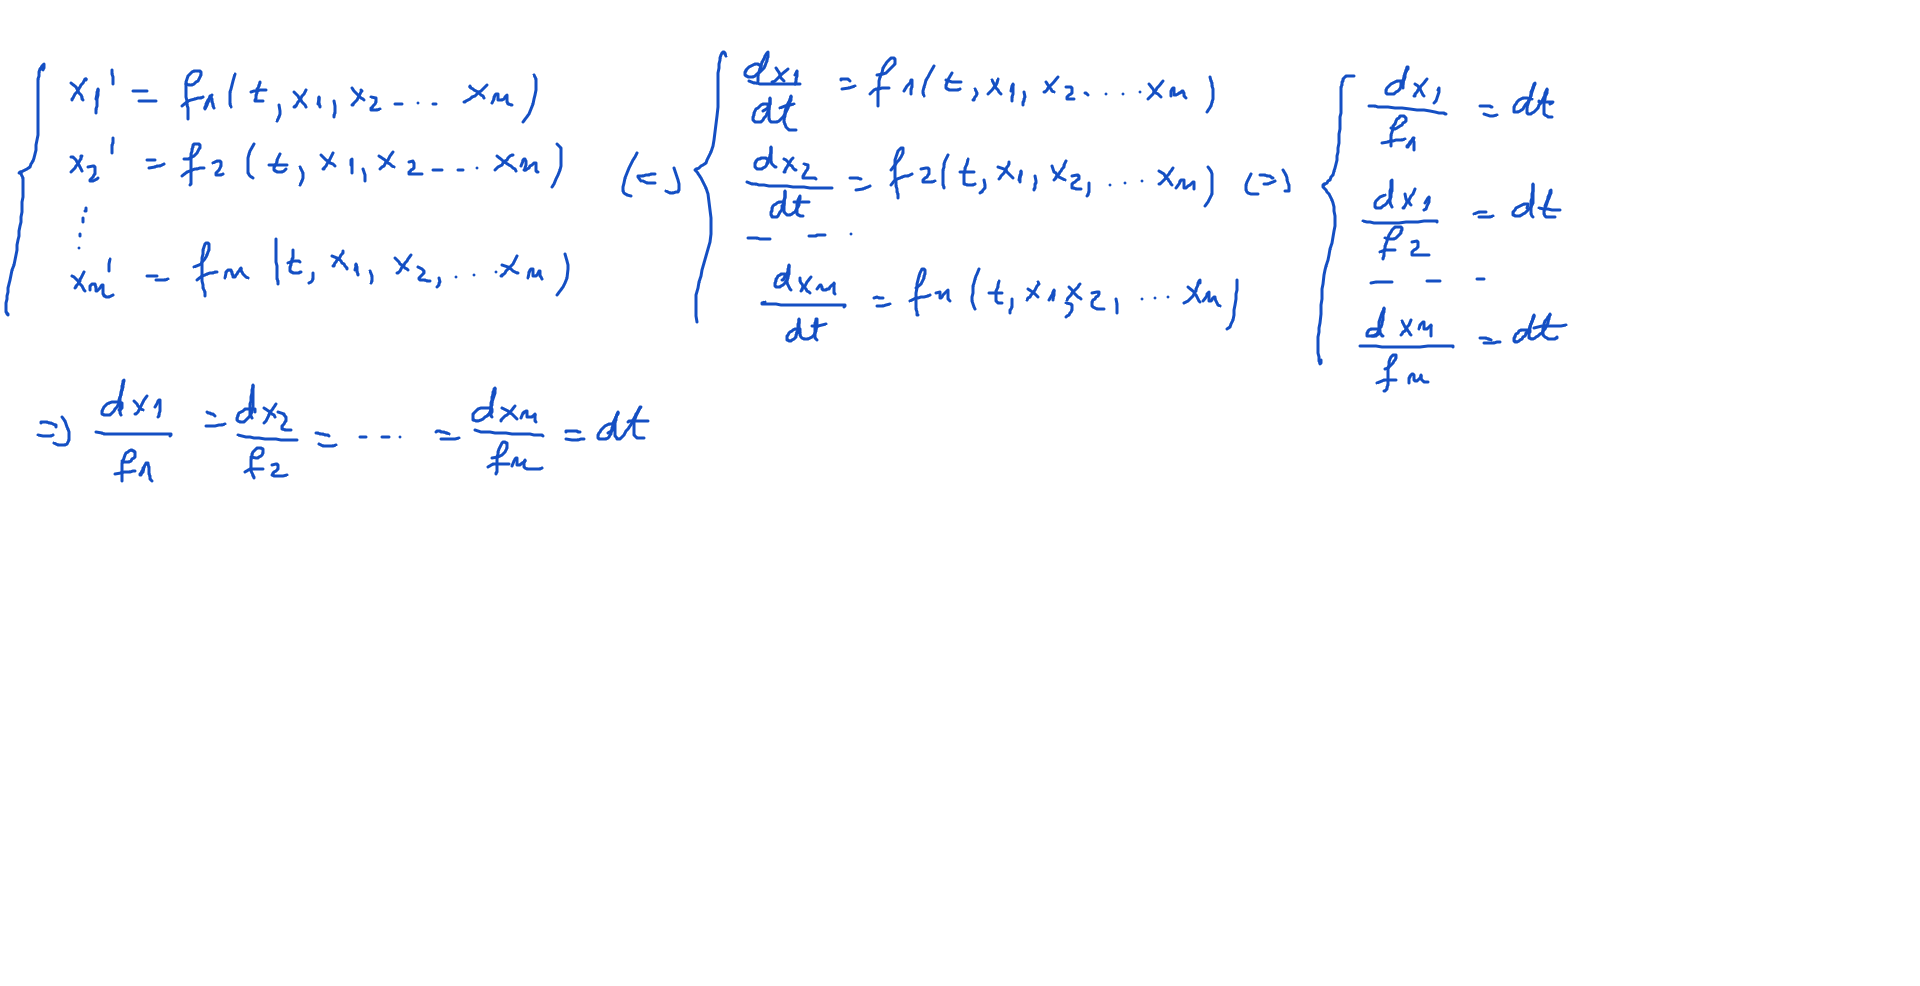 { x₁' = f₁(t, x₁, x₂ - ... xₙ)
x₂' = f₂(t, x₁, x₂ - - .. xₙ)
⋮
xₙ' = fₙ(t, x₁, x₂, ... xₙ)
(=) { dx₁/dt = f₁(t, x₁, x₂ .... xₙ)
dx₂/dt = f₂(t, x₁, x₂, ... xₙ)
- - .
dxₙ/dt = fₙ(t, x₁, x₂, ... xₙ)
(=) { dx₁/f₁ = dt
dx₁/f₂ = dt
- - -
dxₙ/fₙ = dt
=) dx₁/f₁ = dx₂/f₂ = -- .. = dxₙ/fₙ = dt